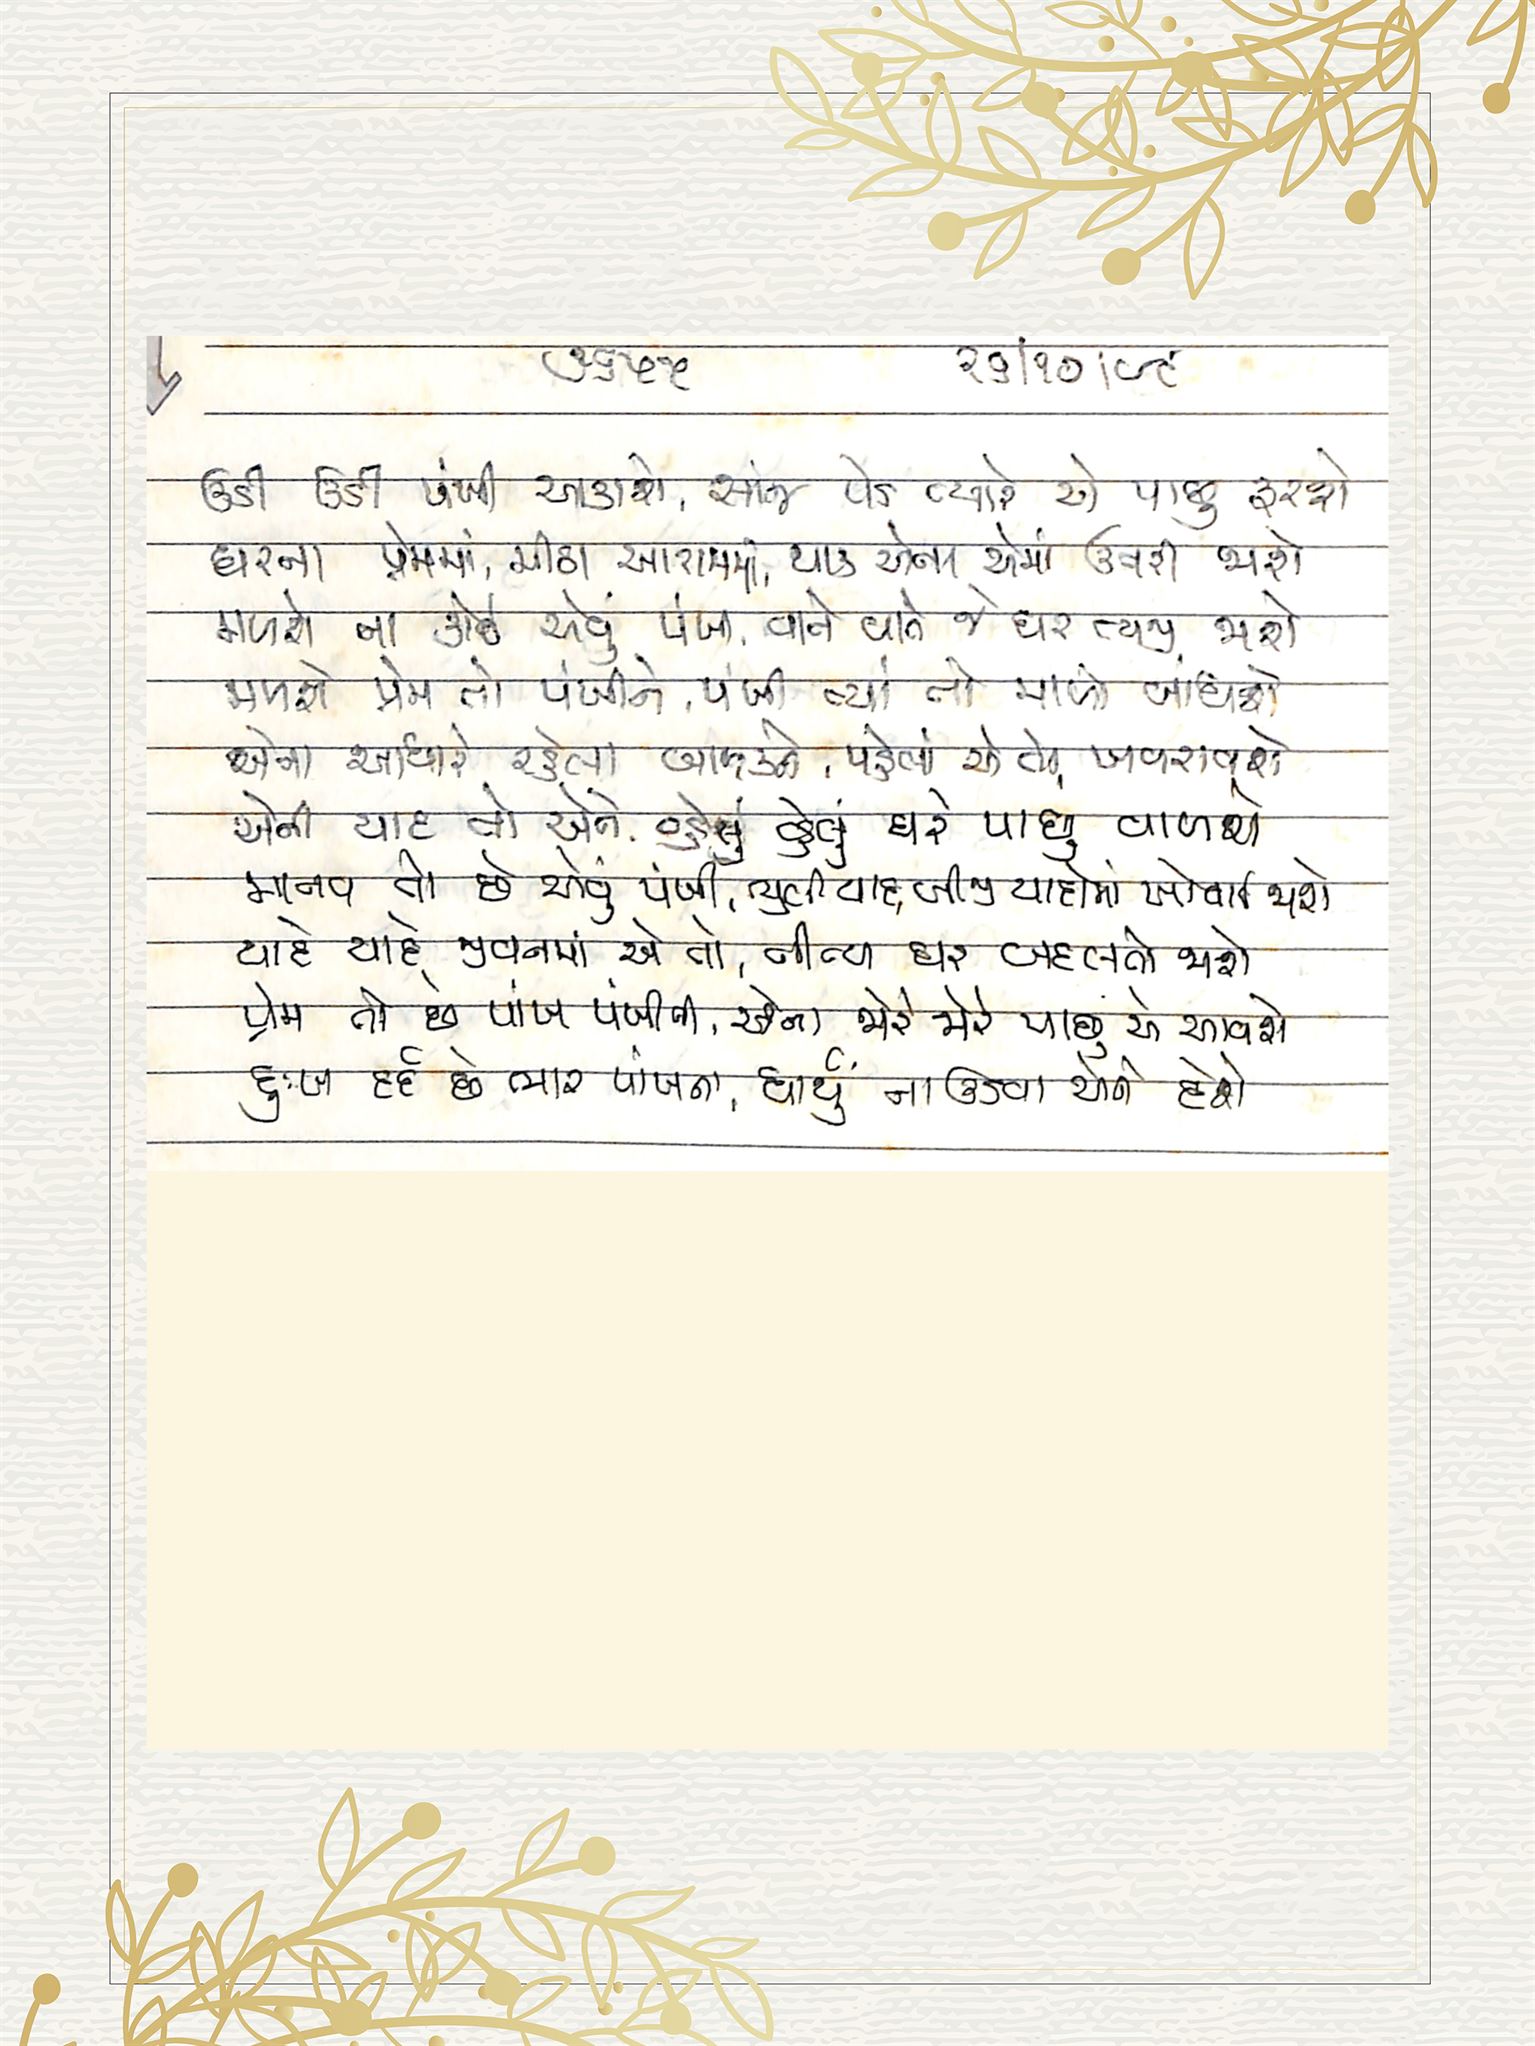 ૭૬૫૫ ૨૬/૧૦/૭૮
ઉડી ઉડી પંખી આકાશે, સાંજ પડે ત્યારે એ પાછુ ફરશે
ઘરના પ્રેમમાં, મીઠા આરામમાં, થાક એના એમાં ઉતરી જાશે
મળશે ના કોઈ એવું પંખી, વાતે વાતે જે ઘર ત્યજી જાશે
મળશે પ્રેમ તો પંખીને, પંખી ત્યાં તો માળો બાંધશે
એના આધારે રહેલા બાળકને, પહેલાં એ તો ખવરાવશે
એની યાદ તો એને, વહેલું વહેલું ઘરે પાછુ વાળશે
માનવ તો છે એવું પંખી, ભુલી યાદ, બીજી યાદોમાં ખોવાઈ જાશે
યાદે યાદે જીવનમાં એ તો, નીત્ય ઘર બદલતો જાશે
પ્રેમ તો છે પાંખ પંખીની, એના જોરે જોરે પાછું એ આવશે
દુઃખ દર્દ છે ભાર પાંખના, ધાર્યું ના ઉડવા એને દેશે